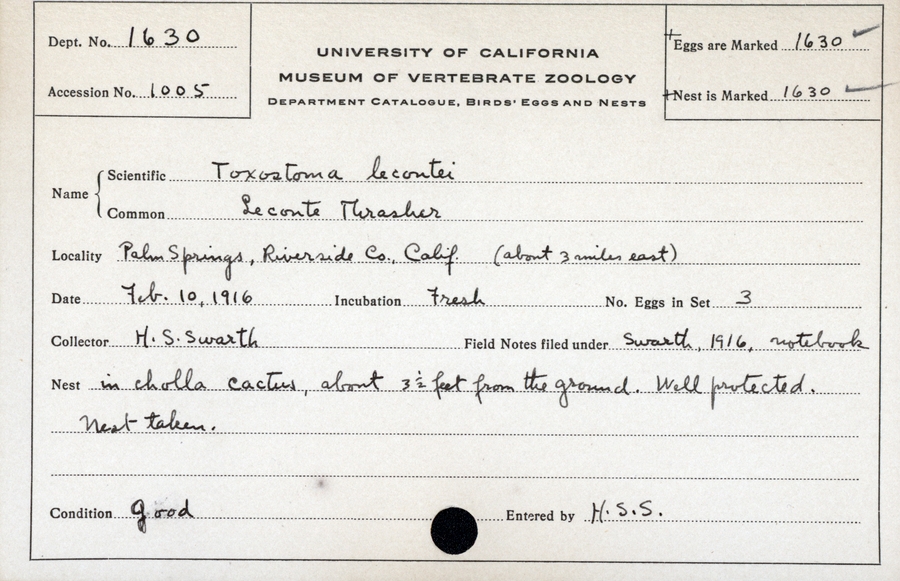 Dept. No. 1630
Accession No. 1005
UNIVERSITY OF CALIFORNIA
MUSEUM OF VERTEBRATE ZOOLOGY
DEPARTMENT CATALOGUE, BIRDS' EGGS AND NESTS
Eggs are Marked 1630
Nest is Marked 1630
Name
Scientific Toxostoma lecontei
Common Leconte Thrasher
Locality Palm Springs, Riverside Co., Calif. (about 3 miles east)
Date Feb. 10, 1916 Incubation Fresh No. Eggs in Set 3
Collector H. S. Swarth Field Notes filed under Swarth, 1916, notebook
Nest in cholla cactus, about 3½ feet from the ground. Well protected.
Nest taken.
Condition good Entered by H.S.S.